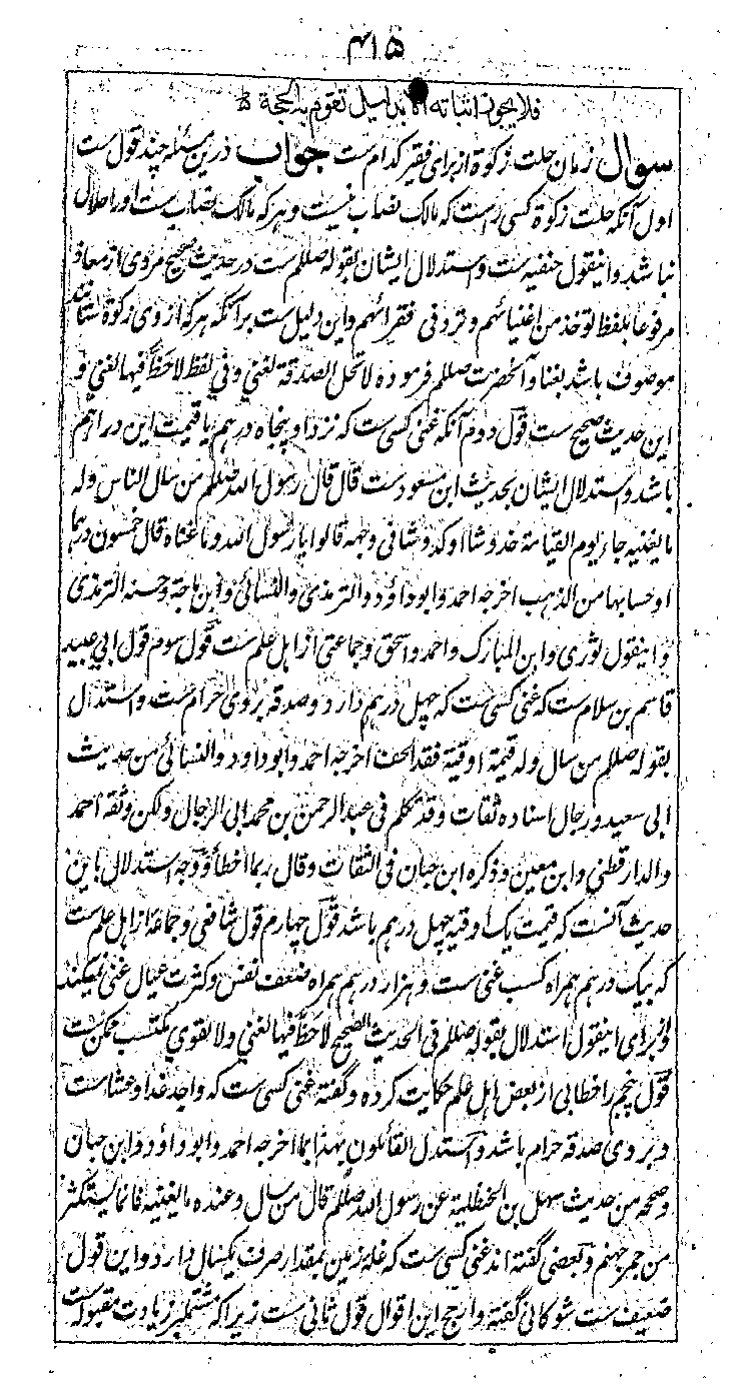 ۴۱۵
فلا یجوز اثباته الا بدلیل تقوم به الحجة
سوال زمان حلت زکوة از برای فقیر کدام ست جواب درین مسئله چند قول ست
اول آنکه حلت زکوة کسی راست که مالک نصاب نیست و هر که مالک نصاب ست او را حلال
نباشد و اینقول حنفیه ست و استدلال ایشان بقوله صللم ست در حدیث صحیح مروی از معاذ
مرفوعا بلفظ توخذ من اغنیائهم و ترد فی فقرائهم و این دلیل ست برآنکه هر که از وی زکوة ستانند
موصوف باشد بغنا و آنحضرت صللم فرموده لا تحل الصدقة لغنی و فی لفظ لا حظ فیها لغنی و
این حدیث صحیح ست قول دوم آنکه غنی کسی ست که نزد او پنجاه درهم یا قیمت این دراهم
باشد و استدلال ایشان بحدیث ابن مسعود ست قال قال رسول الله صللم من سال الناس وله
ما یغنیه جاء یوم القیامة خدوشا او کدوشا فی وجهه قالوا یا رسول الله وما غناه قال خمسون درهما
او حسابها من الذهب اخرجه احمد وابوداؤد والترمذی والنسائی وابن ماجة وحسنه الترمذی
و اینقول ثوری وابن المبارک واحمد واسحق وجماعتی از اهل علم ست قول سوم قول ابی عبید
قاسم بن سلام ست که غنی کسی ست که چهل درهم دارد و صدقه بر وی حرام ست و استدلال
بقوله صللم من سال وله قیمة اوقیة فقد الحف اخرجه احمد وابوداود والنسائی من حدیث
ابی سعید و رجال اسناده ثقات وقد تکلم فی عبدالرحمن بن محمد ابی الرجال ولکن وثقه احمد
والدارقطنی وابن معین وذکره ابن حبان فی الثقات وقال ربما اخطأ و وجه استدلال باین
حدیث آنست که قیمت یک اوقیه چهل درهم باشد قول چهارم قول شافعی وجماعة از اهل علم ست
که بیک درهم همراه کسب غنی ست و هزار درهم همراه ضعف نفس و کثرت عیال غنی نمیکند
و از برای اینقول استدلال بقوله صللم فی الحدیث الصحیح لا حظ فیها لغنی ولا لقوی مکتسب ممکن ست
قول پنجم را خطابی از بعض اهل علم حکایت کرده و گفته غنی کسی ست که واجد غدا و عشا ست
و بر وی صدقه حرام باشد واستدل القائلون بهذا بما اخرجه احمد وابوداؤد وابن حبان
وصححه من حدیث سهل بن الحنظلیة عن رسول الله صللم قال من سال وعنده ما یغنیه فانما یستکثر
من جمر جهنم و بعضی گفته اند غنی کسی ست که غله زمین بمقدار صرف یکسال دارد و این قول
ضعیف ست شوکانی گفته و ارجح این اقوال قول ثانی ست زیراکه مشتمل بر زیادت مقبوله است